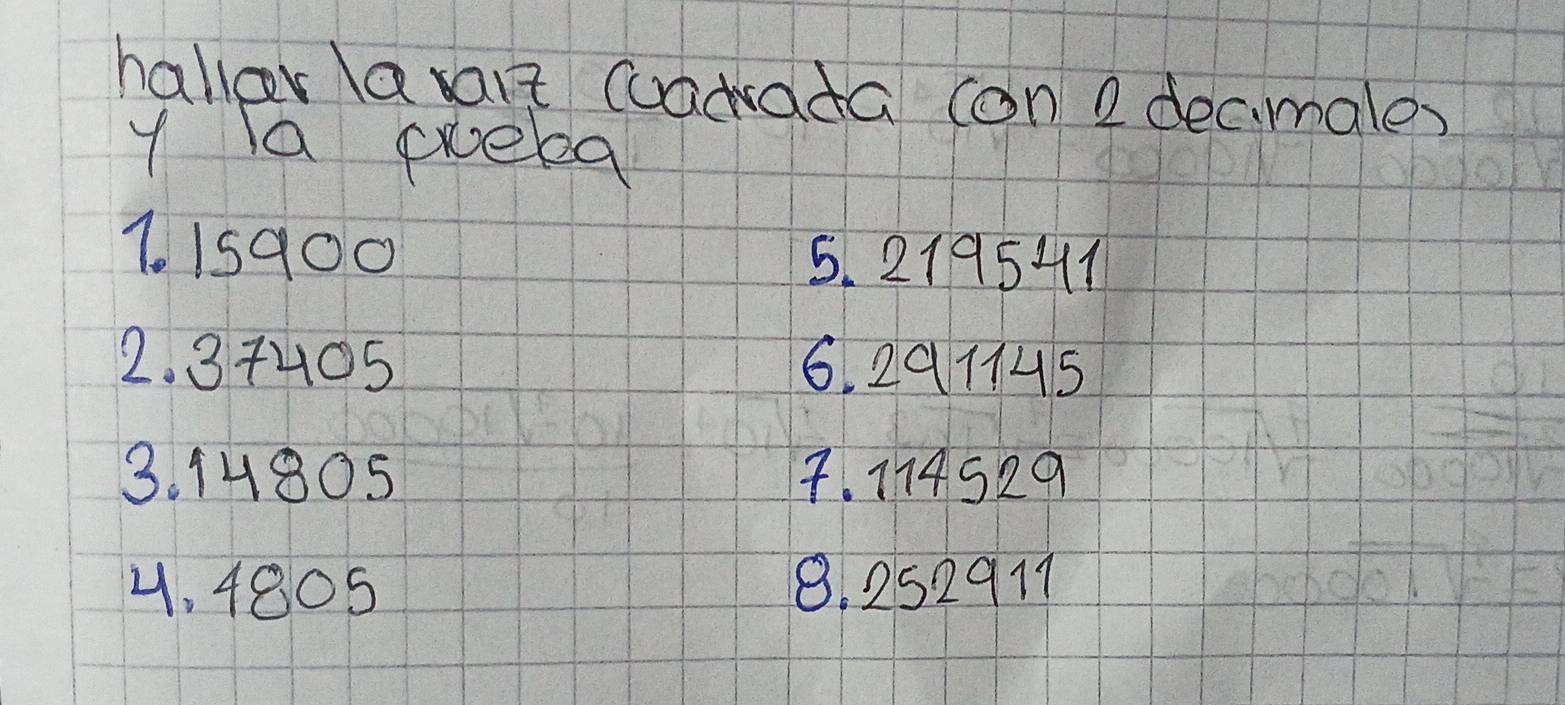 hallar la raiz cuadrada con 2 decimales
y la prueba
1. 15900
2. 37405
3. 14805
4. 4805
5. 219541
6. 291145
7. 114529
8. 252911